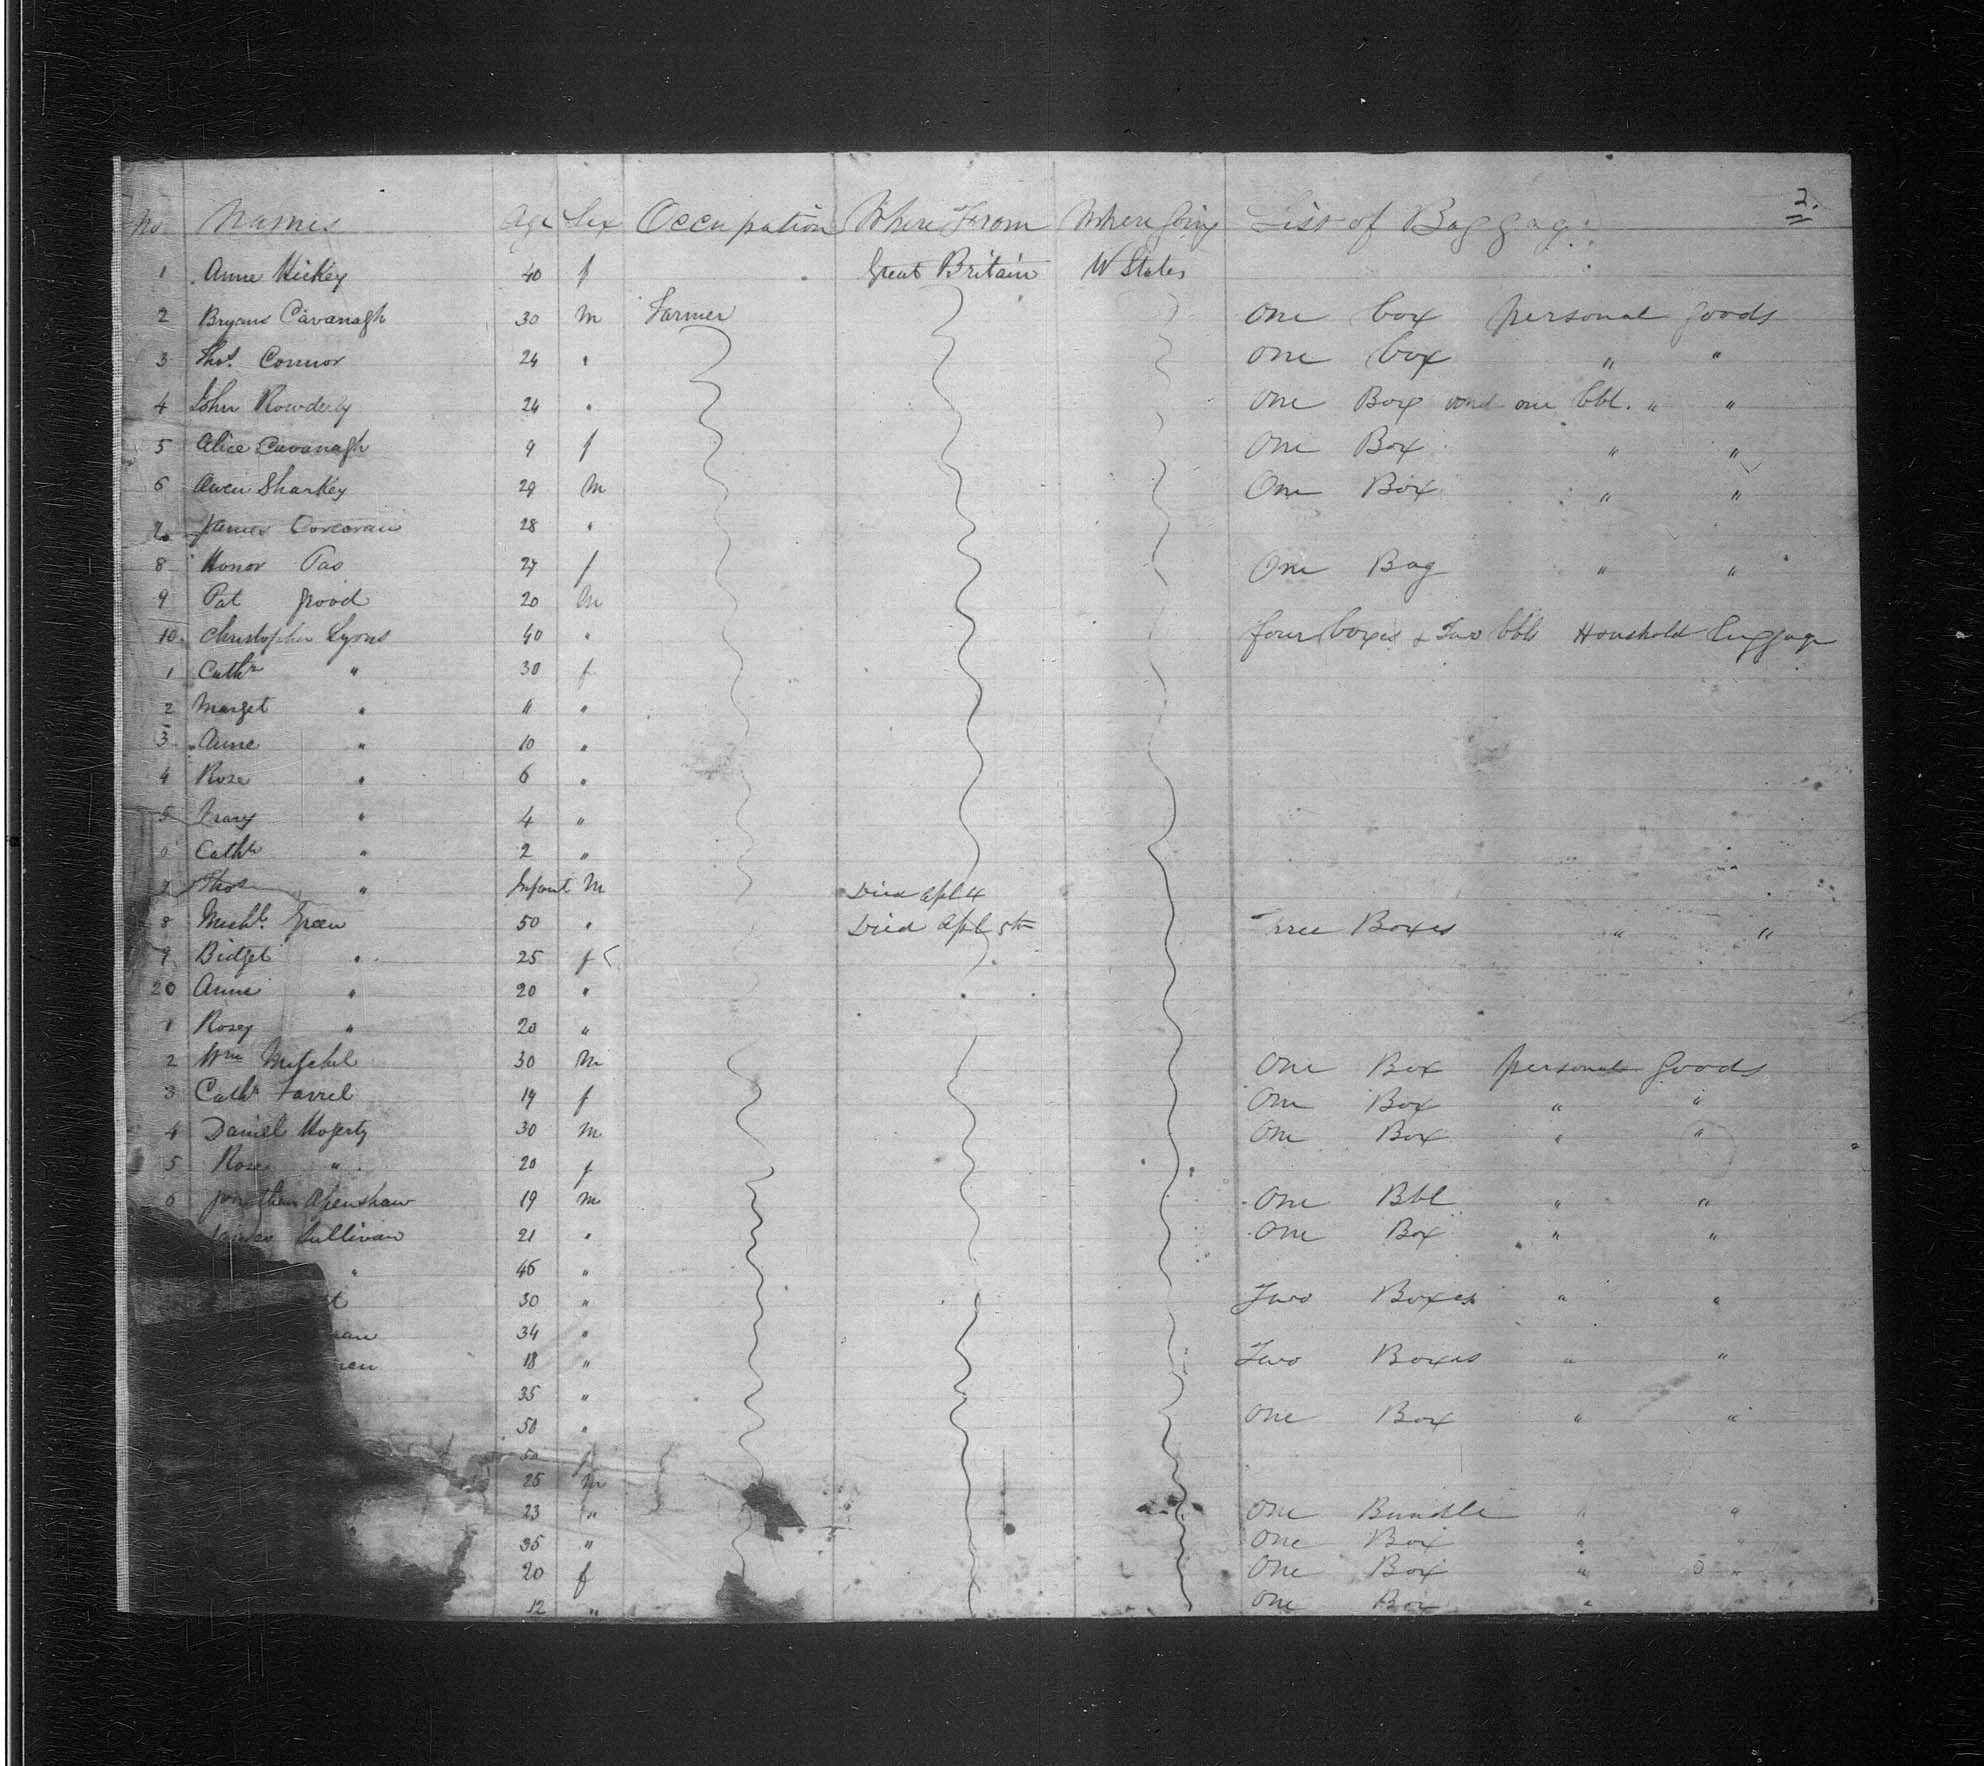 2.
No Names Age Sex Occupation Where From Where Going List of Baggage
1 Anne Hickey 40 f Great Britain U States
2 Bryans Cavanagh 30 m Farmer One box personal goods
3 Thos. Connor 24 " One box " "
4 John Rowderly 24 " One Box and one bbl. " "
5 Alice Cavanagh 9 f One Box " "
6 Owen Sharkey 29 m One Box " "
7 James Corcoran 28 "
8 Honor 27 f One Bag " "
9 Pat 20 m
10 Christopher Lyons 40 " four boxes & Two bbls Houshold luggage
1 Cathn " 30 f
2 Marget " 11 "
3 Anne " 10 "
4 Rose " 6 "
5 " 4 "
6 Cathn " 2 "
7 Thos " Infant m Died Apl 4
8 Michl. Green 50 " Died Apl 5th Three Boxes " "
9 Bidget " 25 f
20 Anne " 20 "
1 Rosey " 20 "
2 Wm Mitchel 30 m One Box personal goods
3 Cathn Farrel 19 f One Box " "
4 Daniel Hogerty 30 m One Box " "
5 Rose " 20 f
6 Jonathan Openshaw 19 m One Bbl " "
James Sullivan 21 " One Box " "
" 46 "
30 " Two Boxes " "
34 "
18 " Two Boxes " "
35 "
50 " One Box " "
50 f
25 m
23 " One Bundle " "
35 " One Box " "
20 f One Box " "
12 " One Box "